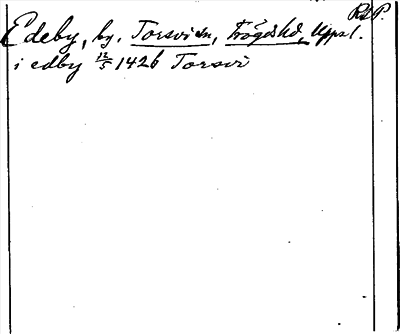 RAP.
Edeby, by. Torsvi sn, Trögds hd, Uppsl.
i edby 12/5 1426 Torsvi